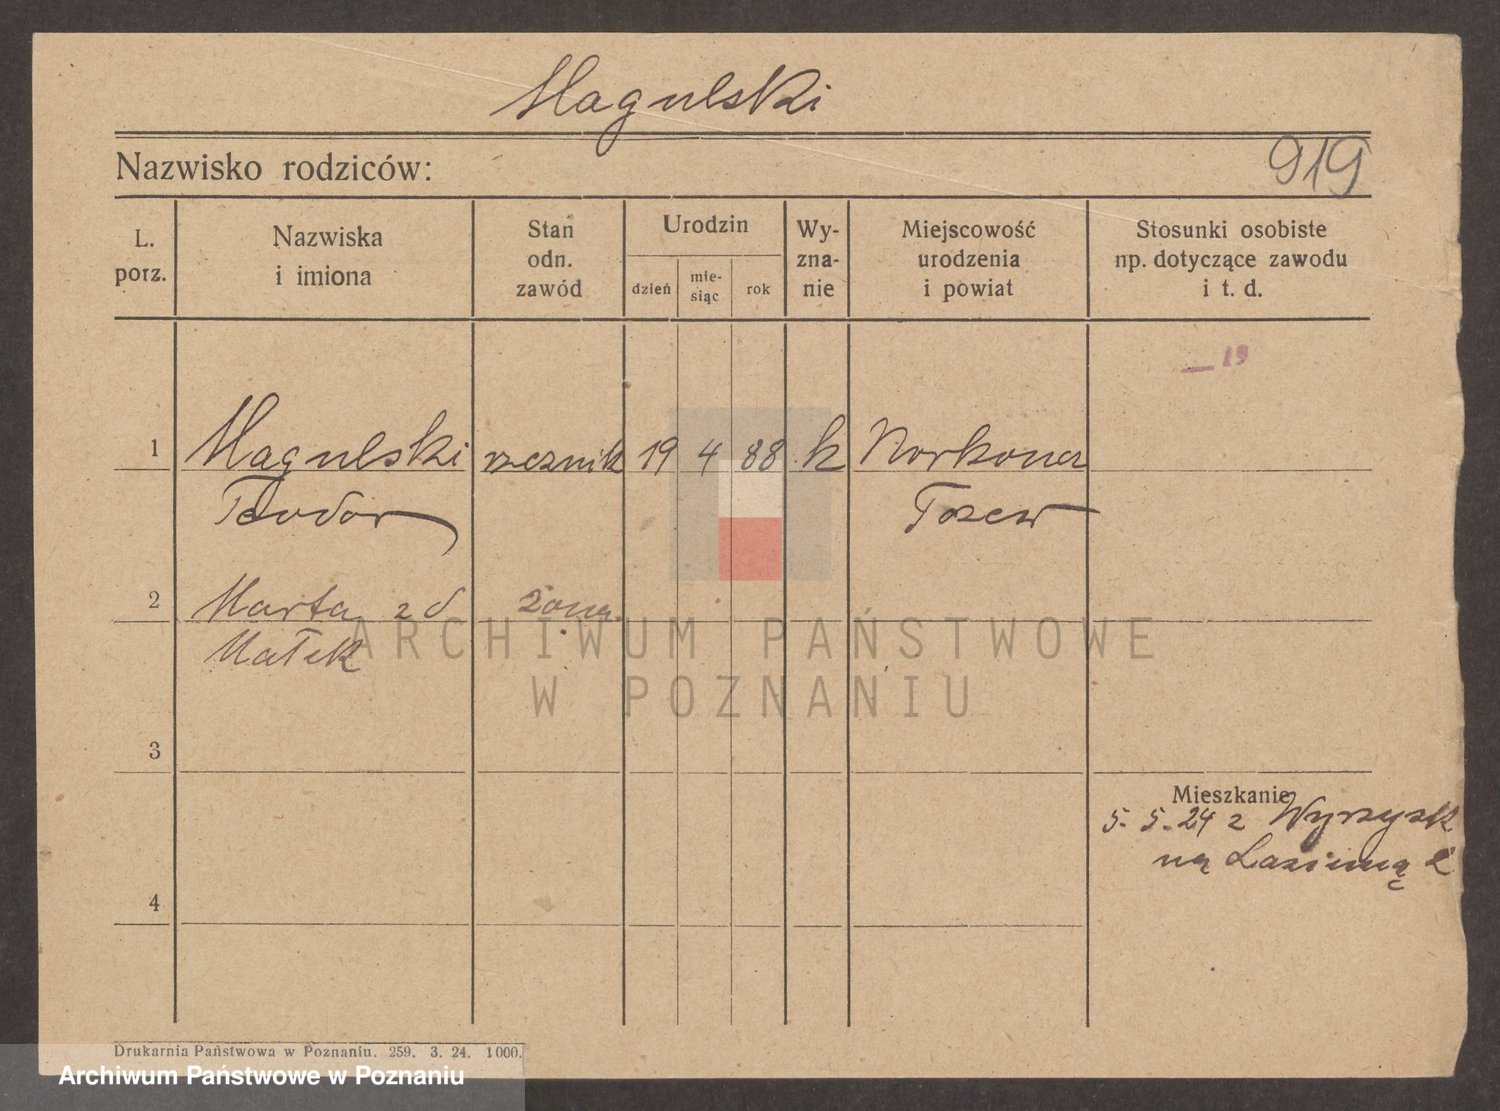 Magulski
919
Nazwisko rodziców:
L. porz.
Nazwiska i imiona
Stan odn. zawód
Urodzin
dzień
mie- siąc
rok
Wy- zna- nie
Miejscowość urodzenia i powiat
Stosunki osobiste np. dotyczące zawodu i t. d.
19
1 Magulski rzeznik 19 4 88 k
Teodor Tczew
2 Marta z d żona
3
Mieszkanie
5. 5. 24 z Wyrzysk
na
4
ARCHIWUM PAŃSTWOWE
W POZNANIU
Drukarnia Państwowa w Poznaniu. 259. 3. 24. 1000.
Archiwum Państwowe w Poznaniu